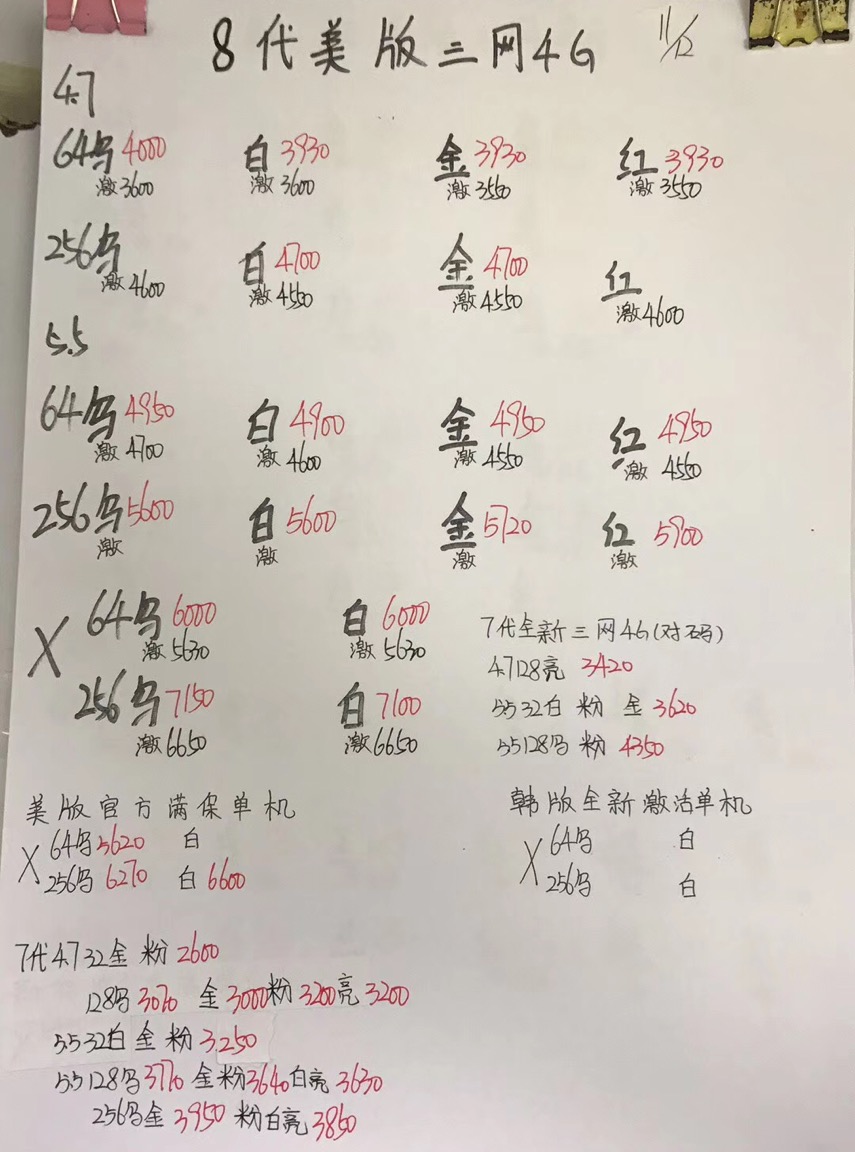 8代美版三网4G 11/12
4.7
64乌 4000 白 3930 金 3930 红 3930
激3600 激3600 激3550 激3550
256乌 白 4700 金 4700 红
激4600 激4550 激4550 激4600
5.5
64乌 4950 白 4900 金 4950 红 4950
激4700 激4600 激4550 激4550
256乌 5600 白 5600 金 5720 红 5900
激 激 激 激
X 64乌 6000 白 6000
激5630 激5630
256乌 7150 白 7100
激6650 激6650
7代全新三网4G(对码)
4.7128亮 3420
5.532白 粉 金 3620
5.5128乌 粉 4350
美版官方满保单机
X 64乌 5620 白
256乌 6270 白 6600
韩版全新激活单机
X 64乌 白
256乌 白
7代4.732金 粉 2600
128乌 3070 金 3000 粉 3200 亮 3200
5.532白 金 粉 3250
5.5128乌 3770 金粉 3640 白亮 3630
256乌金 3950 粉白亮 3850